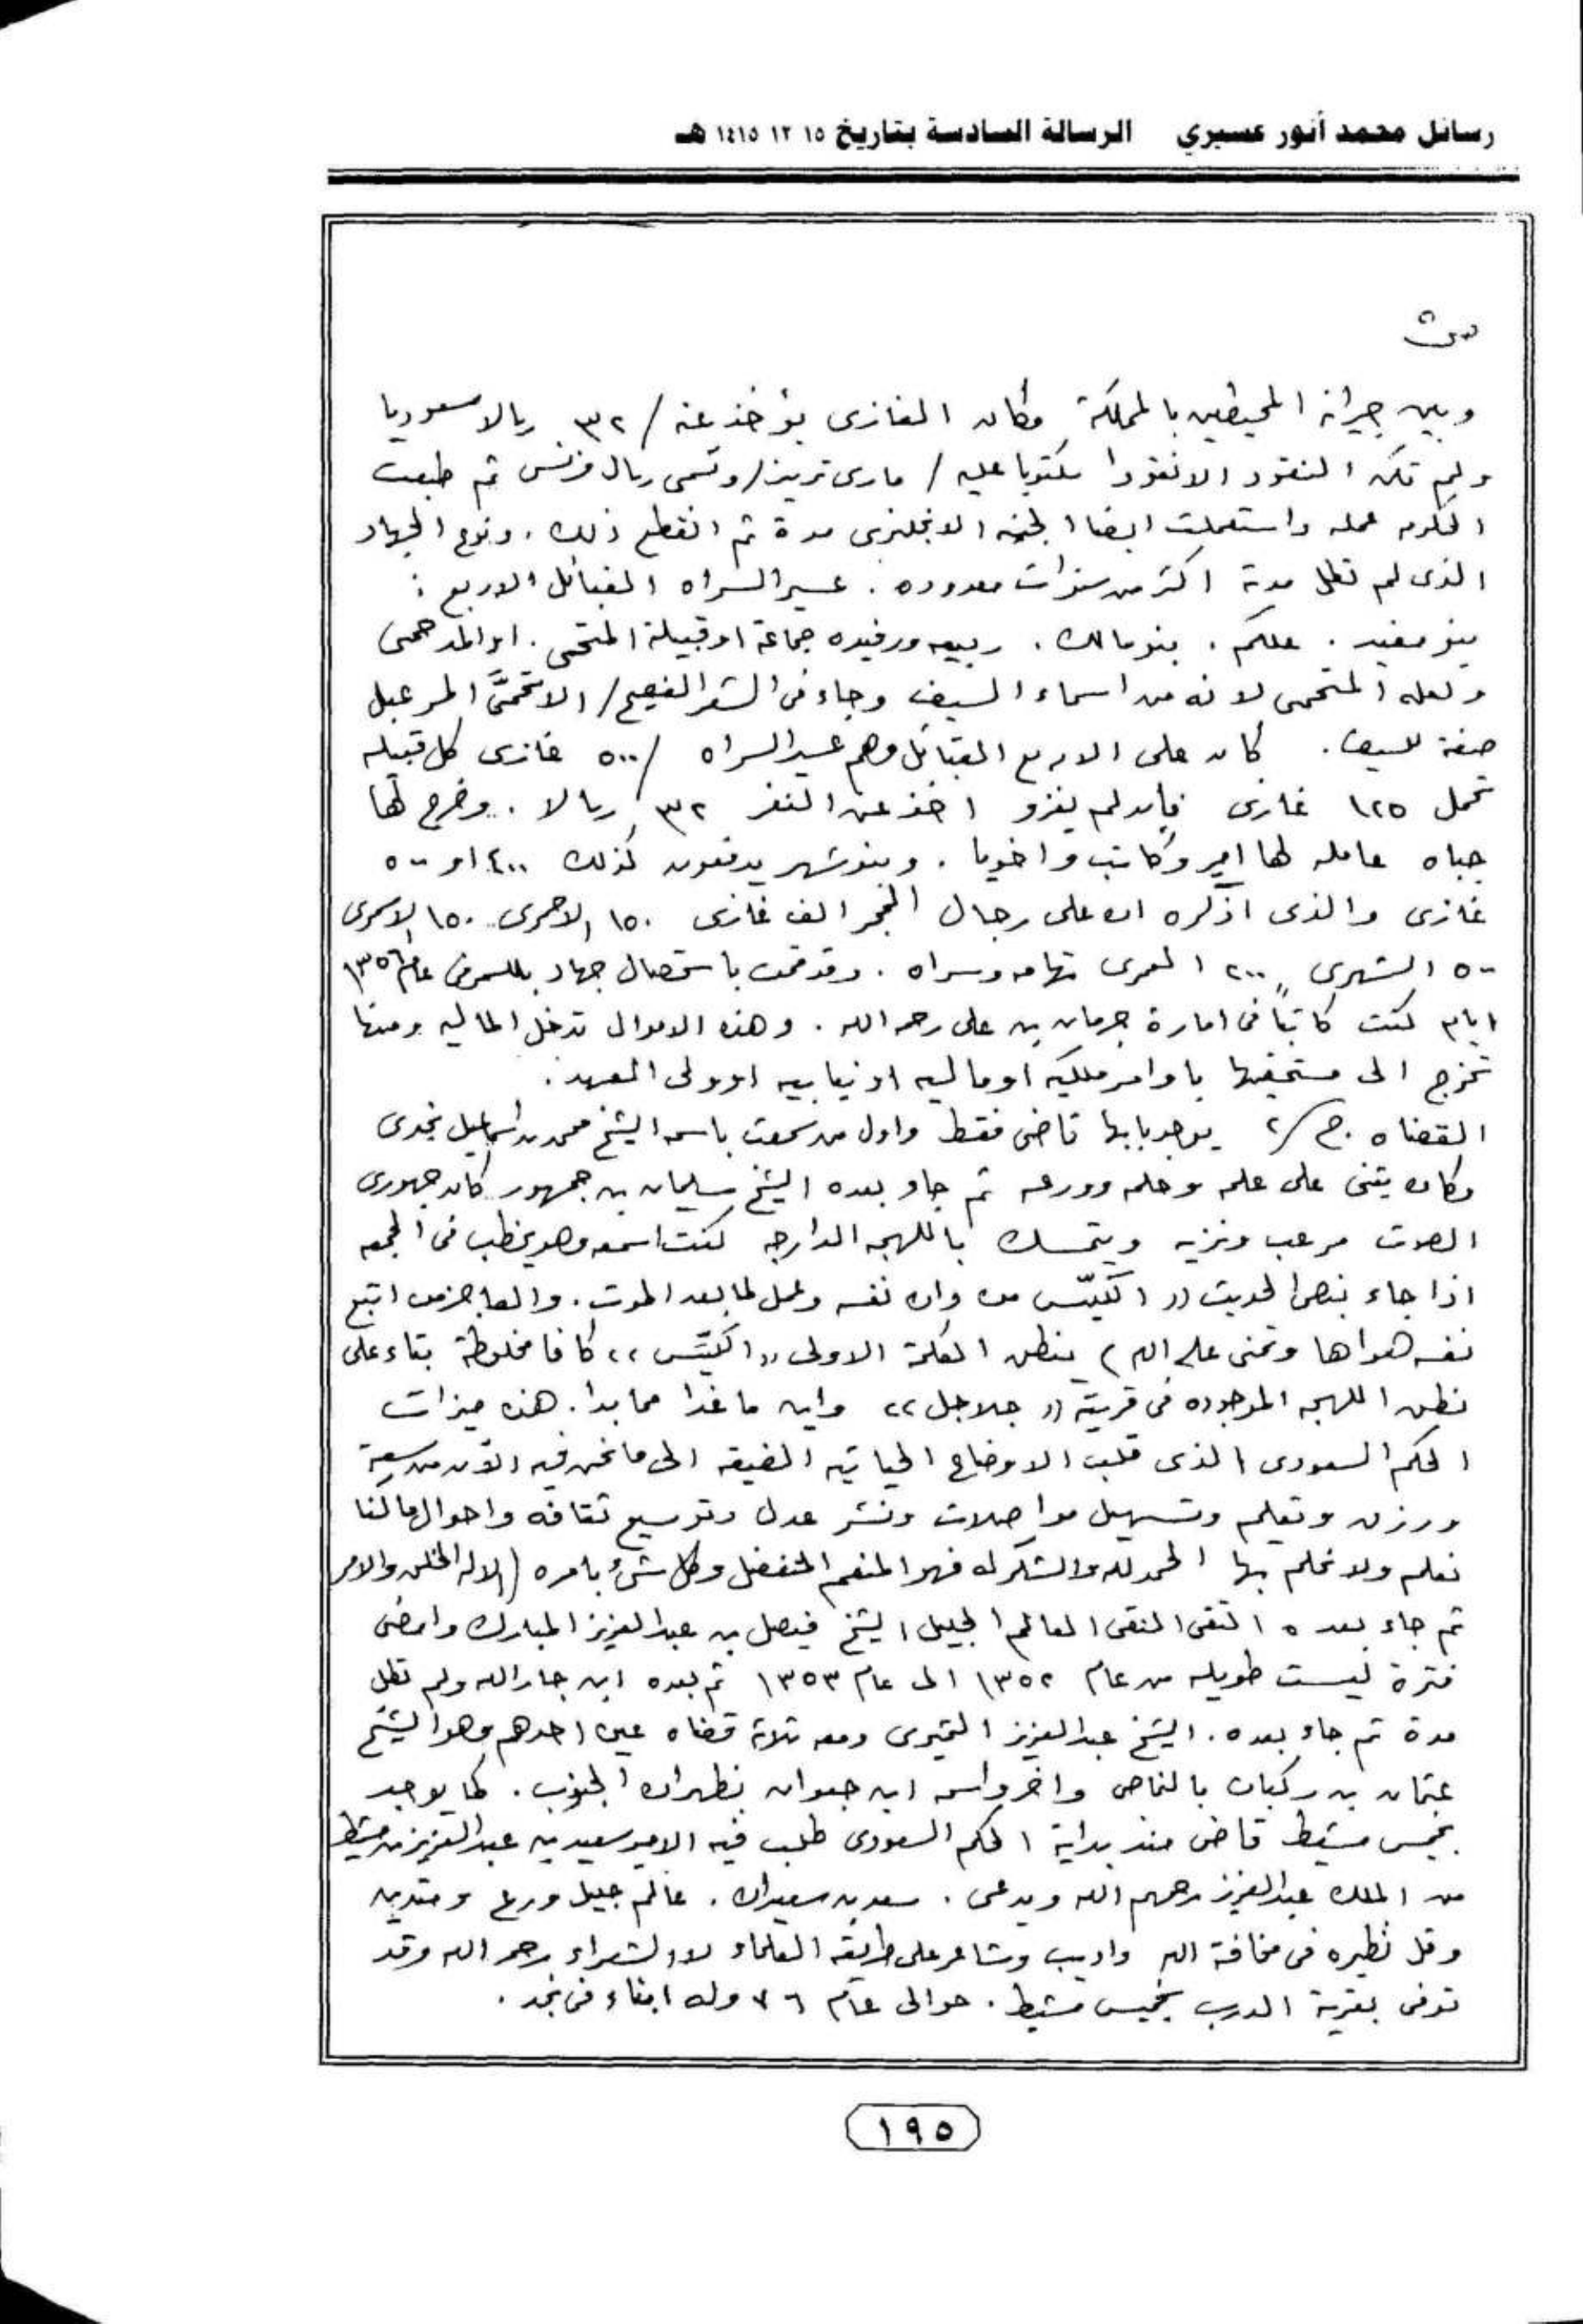 رسائل محمد أنور عسيري الرسالة السادسة بتاريخ ١٥ ١٢ ١٤١٥ هـ
وبين جيرانه المحيطين بالمملكة وكان الغازى يؤخذ عنه / ٣٢ ريالا سعوديا
ولم تكن النقود الا نقودا مكتوبا عليه / مارى تريز / وتسمى ريال فرنسى ثم طبعت
الحكومه عمله واستعملت ايضا الجنيه الانجليزى مدة ثم انقطع ذلك . ونوع الجهاد
الذى لم تطل مدته اكثر من سنوات معدوده . عسير السراه القبائل الاربع :
بنو مغيد . علكم . بنو مالك . ربيعه ورفيده جماعة او قبيلة المتحمى . او المدحمى
ولعله المتحمى لانه من اسماء السيف وجاء فى الشعر الفصيح / الاتحمىَّ المرعبل
صفة للسيف . كان على الاربع القبائل وهم عسير السراه / ٥٠٠ غازى كل قبيله
تحمل ١٢٥ غازى فإن لم يغزو اخذ عن النفر ٣٢ ريالا . وخرج لها
جباه عامله لها امير وكاتب واخويا . وبنو شهر يدفعون كذلك ٤٠٠ او ٥٠٠
غازى والذى اذكره ان على رجال الحجر الف غازى ١٥٠ الاحمرى ١٥٠ الاسمرى
٥٠٠ الشهرى ٢٠٠ العمرى تهامه وسراه . وقد قمت باستحصال جهاد بللسمر فى عام ١٣٥٦
ايام كنت كاتباً فى امارة جرمان بن على رحمه الله . وهذه الاموال تدخل الماليه ومنها
تخرج الى مستحقيها باوامر ملكيه او ماليه او نيابيه او ولى العهد .
القضاه . ج/٢ يوجد بابها قاضى فقط واول من سمعت باسمه الشيخ محمد بن اسماعيل نجدى
وكان يثنى على علمه وحلمه وورعه ثم جاء بعده الشيخ سليمان بن جمهور كان جهورى
الصوت مرعب ونزيه ويتمسك باللهجه الدارجه كنت اسمعه وهو يخطب فى الجمعه
اذا جاء بنص الحديث (( الكيّس من دان نفسه وعمل لما بعد الموت . والعاجز من اتبع
نفسه هواها وتمنى على الله ) ينطق الكلمة الاولى (( الكيّس )) كافا مخلوطة بتاء على
نطق اللهجه الموجوده فى قرية (( جلاجل )) واين ما غدا مما بدا . هذه ميزات
الحكم السعودى الذى قلب الاوضاع الحياتيه الضيقه الى ما نحن فيه الآن من سعة
ورزق وتعليم وتسهيل مواصلات ونشر عدل وتوسيع ثقافه واحوال ما كنا
نعلم ولا نحلم بها الحمد لله والشكر له فهو المنعم المتفضل وكل شىء بأمره ( الا له الخلق والامر
ثم جاء بعده التقى النقى العالم الجليل الشيخ فيصل بن عبدالعزيز المبارك وامضى
فترة ليست طويله من عام ١٣٥٢ الى عام ١٣٥٣ ثم بعده ابن جارالله ولم تطل
مدة ثم جاء بعده . الشيخ عبدالعزيز التميرى ومعه ثلاثة قضاه عين احدهم وهو الشيخ
عثمان بن ركبان بالنماص واخر واسمه ابن جبوان بظهران الجنوب . كما يوجد
بخميس مشيط قاضى منذ بداية الحكم السعودى طلب فيه الامير سعيد بن عبدالعزيز بن مشيط
من الملك عبدالعزيز رحمهم الله ويدعى . سعد بن سعيدان . عالم جليل ورع ومتدين
وقل نظيره فى مخافة الله واديب وشاعر على طريقة العلماء لا الشعراء رحمه الله وقد
توفى بقرية الدرب بخميس مشيط . حوالى عام ٧٦ وله ابناء فى نجد .
١٩٥